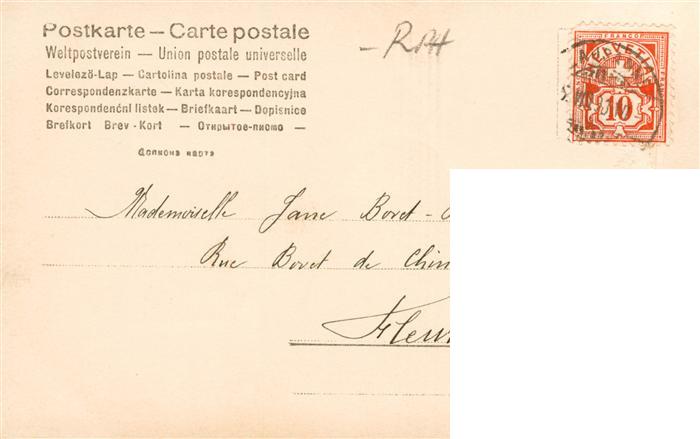 Postkarte — Carte postale
Weltpostverein — Union postale universelle
Levelezö-Lap — Cartolina postale — Post card
Correspondenzkarte — Karta korespondencyjna
Korespondenční lístek — Briefkaart — Dopisnice
Brefkort Brev-Kort — Открытое-письмо —
Дописна карта
— RPH
FRANCO
HELVETIA
10
Mademoiselle Jane Bovet-
Rue Bovet de Chin
Fleu